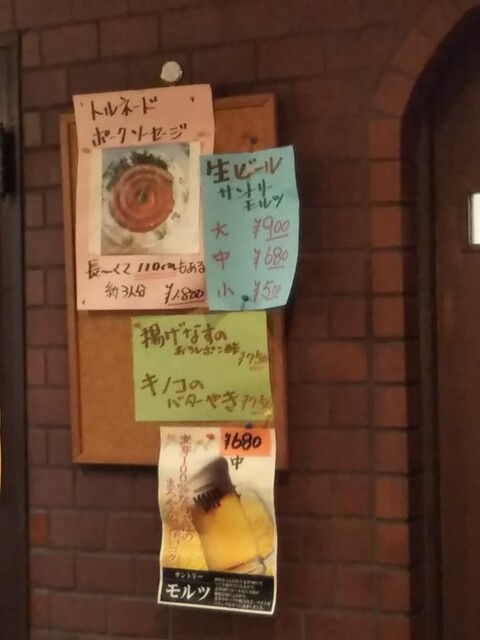 トルネード
ポークソーセージ
長〜くて 110cmもある
約3人分 ¥1,800
生ビール
サントリー
モルツ
大 ¥900
中 ¥680
小 ¥500
揚げなすの
おろしポン酢
¥750
キノコの
バターやき ¥750
¥680
中
麦芽100%
サントリー
モルツ